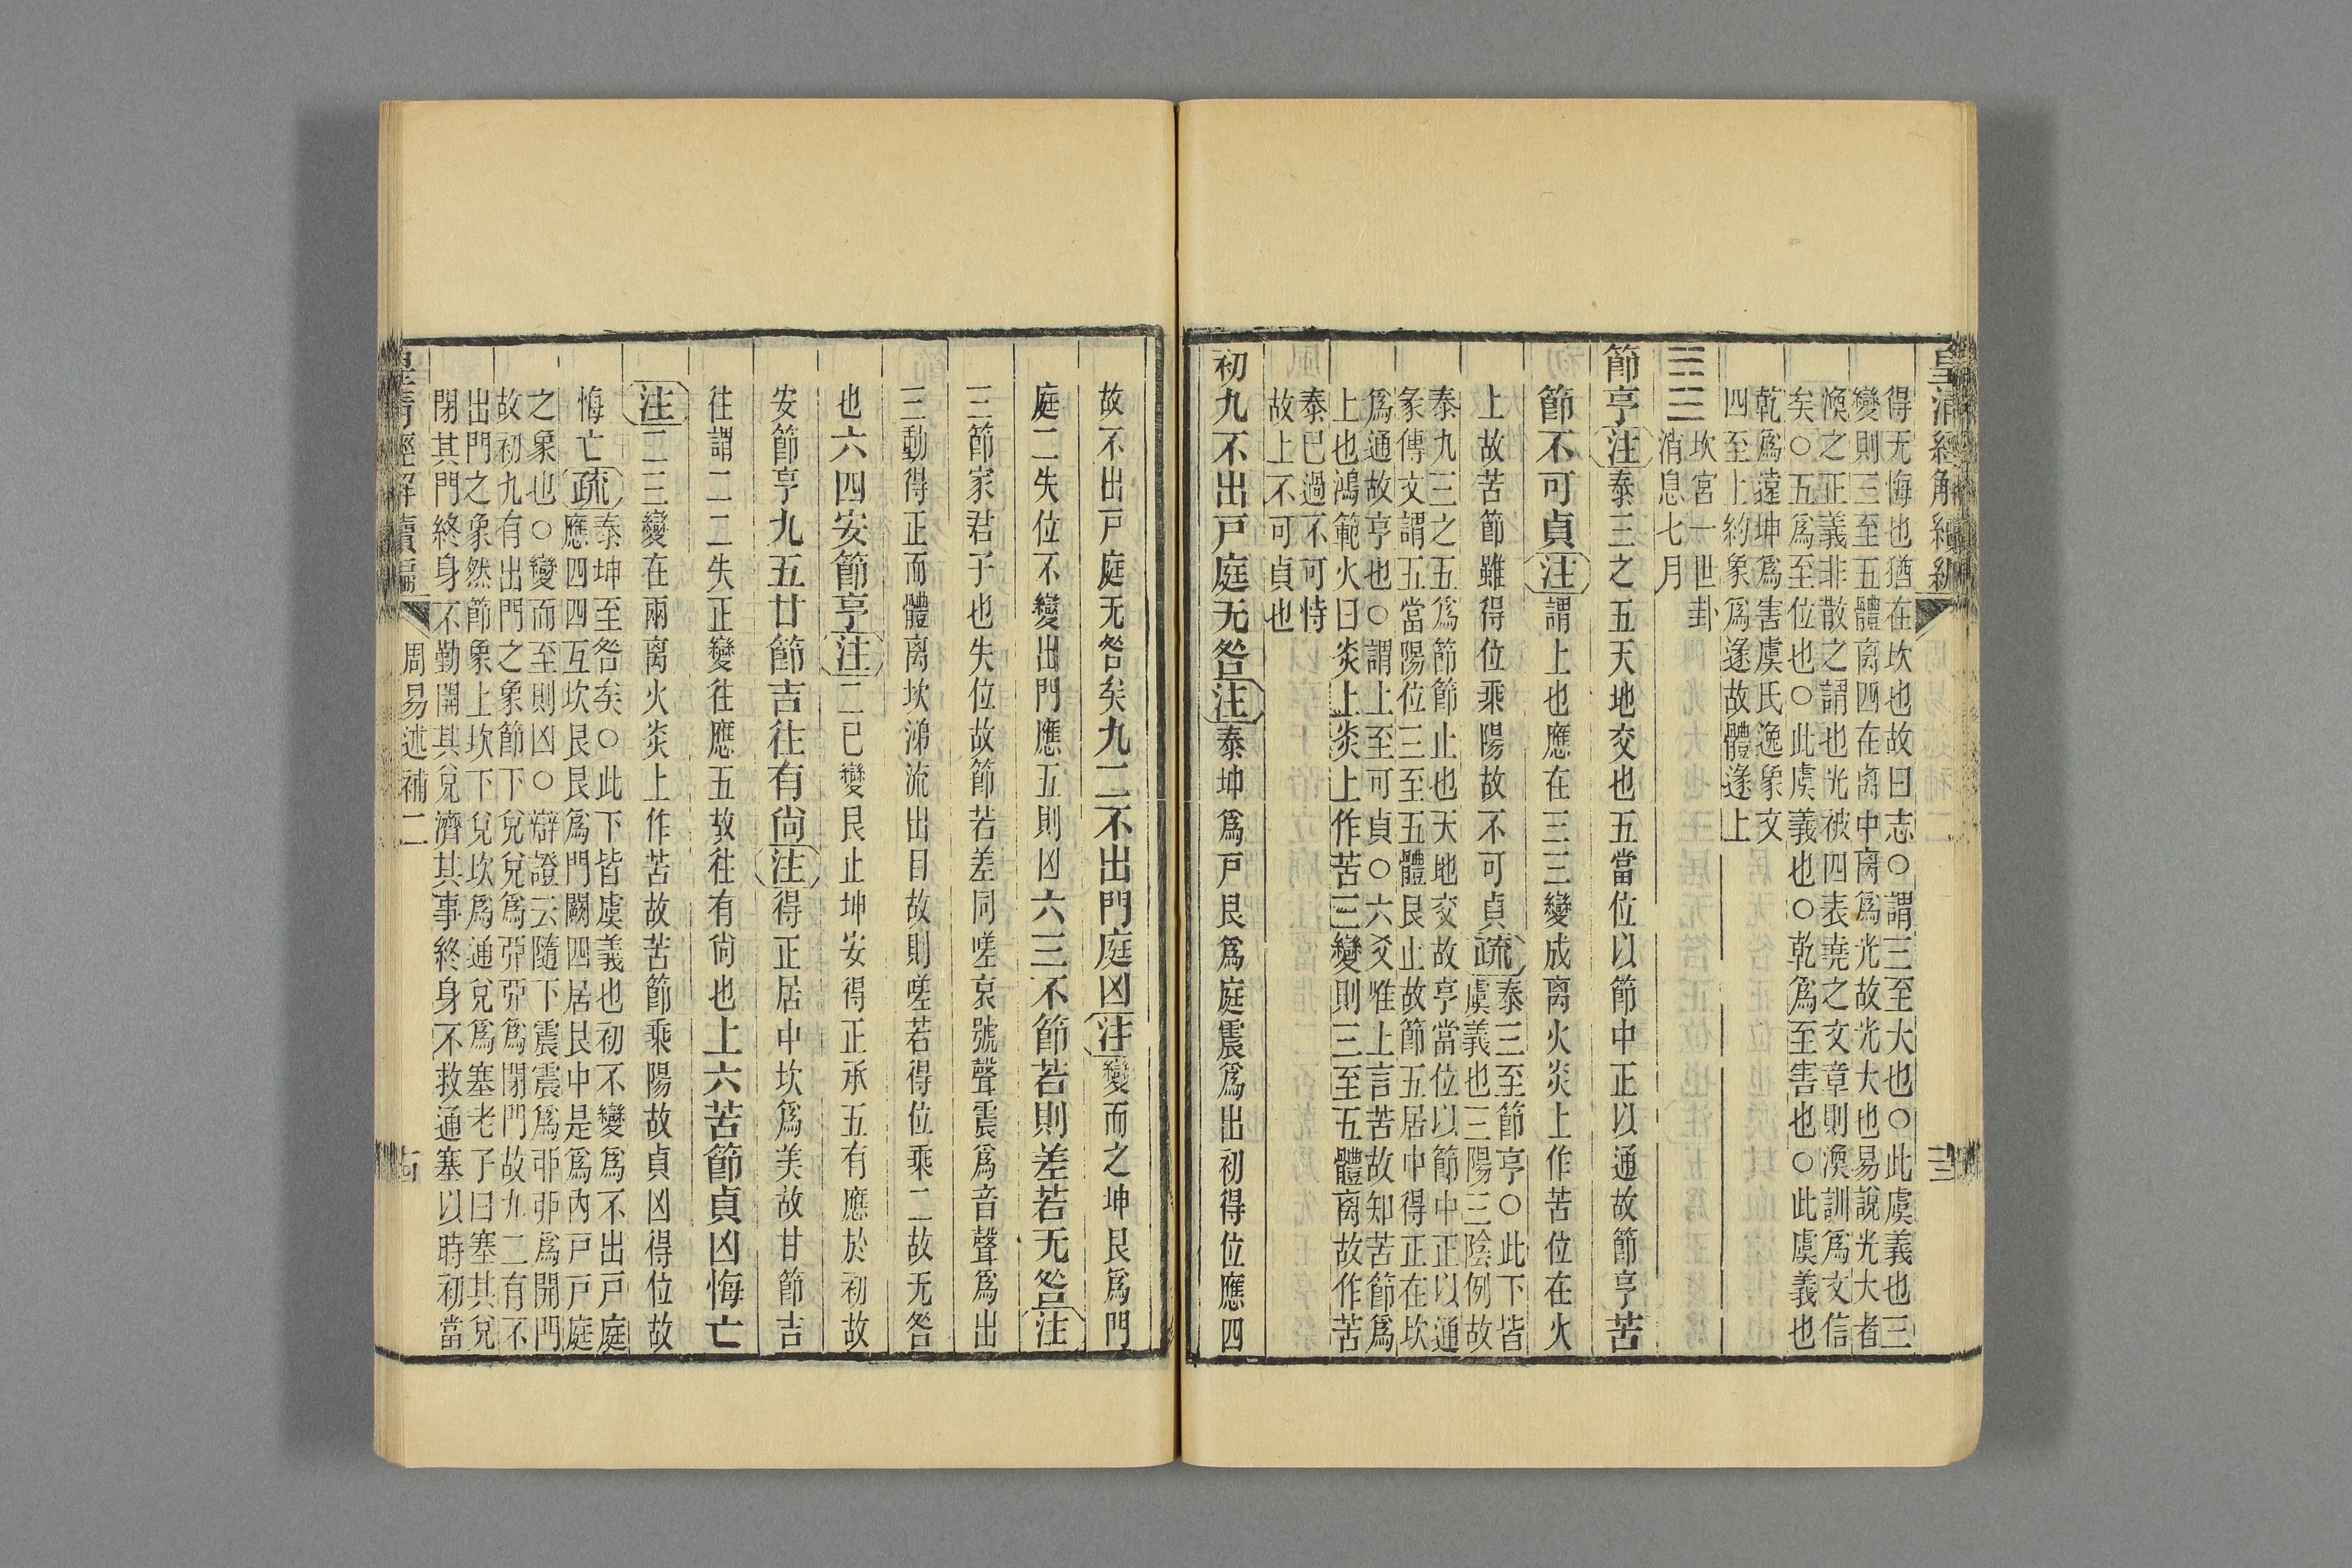 皇清經解續編
得无悔也猶在坎也故曰志○謂三至大也○此虞義也三
變則三至五體离四在离中离爲光故光大也易說光大者
渙之正義非散之謂也光被四表堯之文章則渙訓爲文信
矣○五爲至位也○此虞義也○乾爲至害也○此虞義也
乾爲遠坤爲害虞氏逸象文
四至上約象爲遂故體遂上
坎宮一世卦
消息七月
節亨注泰三之五天地交也五當位以節中正以通故節亨苦
節不可貞注謂上也應在三三變成离火炎上作苦位在火
上故苦節雖得位乘陽故不可貞疏泰三至節亨○此下皆
虞義也三陽三陰例故
泰九三之五爲節節止也天地交故亨當位以節中正以通
彖傳文謂五當陽位三至五體艮止故節五居中得正在坎
爲通故亨也○謂上至可貞○六爻唯上言苦故知苦節爲
上也鴻範火曰炎上炎上作苦三變則三至五體离故作苦
泰已過不可恃
故上不可貞也
初九不出戸庭无咎注泰坤爲戸艮爲庭震爲出初得位應四
故不出戸庭无咎矣九二不出門庭凶注變而之坤艮爲門
庭二失位不變出門應五則凶六三不節若則差若无咎注
三節家君子也失位故節若差同嗟哀號聲震爲音聲爲出
三動得正而體离坎涕流出目故則嗟若得位乘二故无咎
也六四安節亨注二已變艮止坤安得正承五有應於初故
安節亨九五甘節吉往有尙注得正居中坎爲美故甘節吉
往謂二二失正變往應五故往有尙也上六苦節貞凶悔亡
注二三變在兩离火炎上作苦故苦節乘陽故貞凶得位故
悔亡疏泰坤至咎矣○此下皆虞義也初不變爲不出戸庭
應四四互坎艮艮爲門闕四居艮中是爲內戸戸庭
之象也○變而至則凶○辯證云隨下震震爲丣丣爲開門
故初九有出門之象節下兌兌爲丣丣爲閉門故九二有不
出門之象然節象上坎下兌坎爲通兌爲塞老子曰塞其兌
閉其門終身不勤開其兌濟其事終身不救通塞以時初當
皇清經解續編
周易述補二